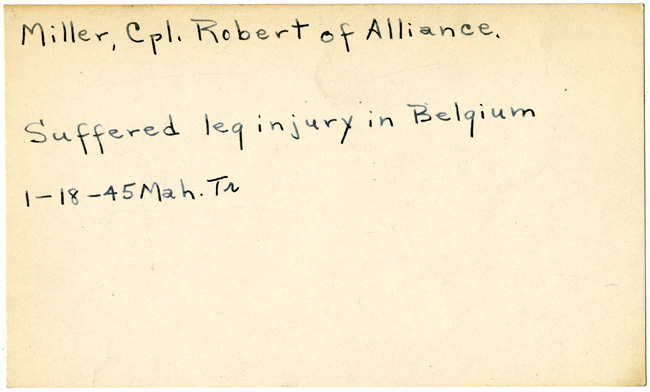 Miller, Cpl. Robert of Alliance.
Suffered leg injury in Belgium
1-18-45 Mah. Tr